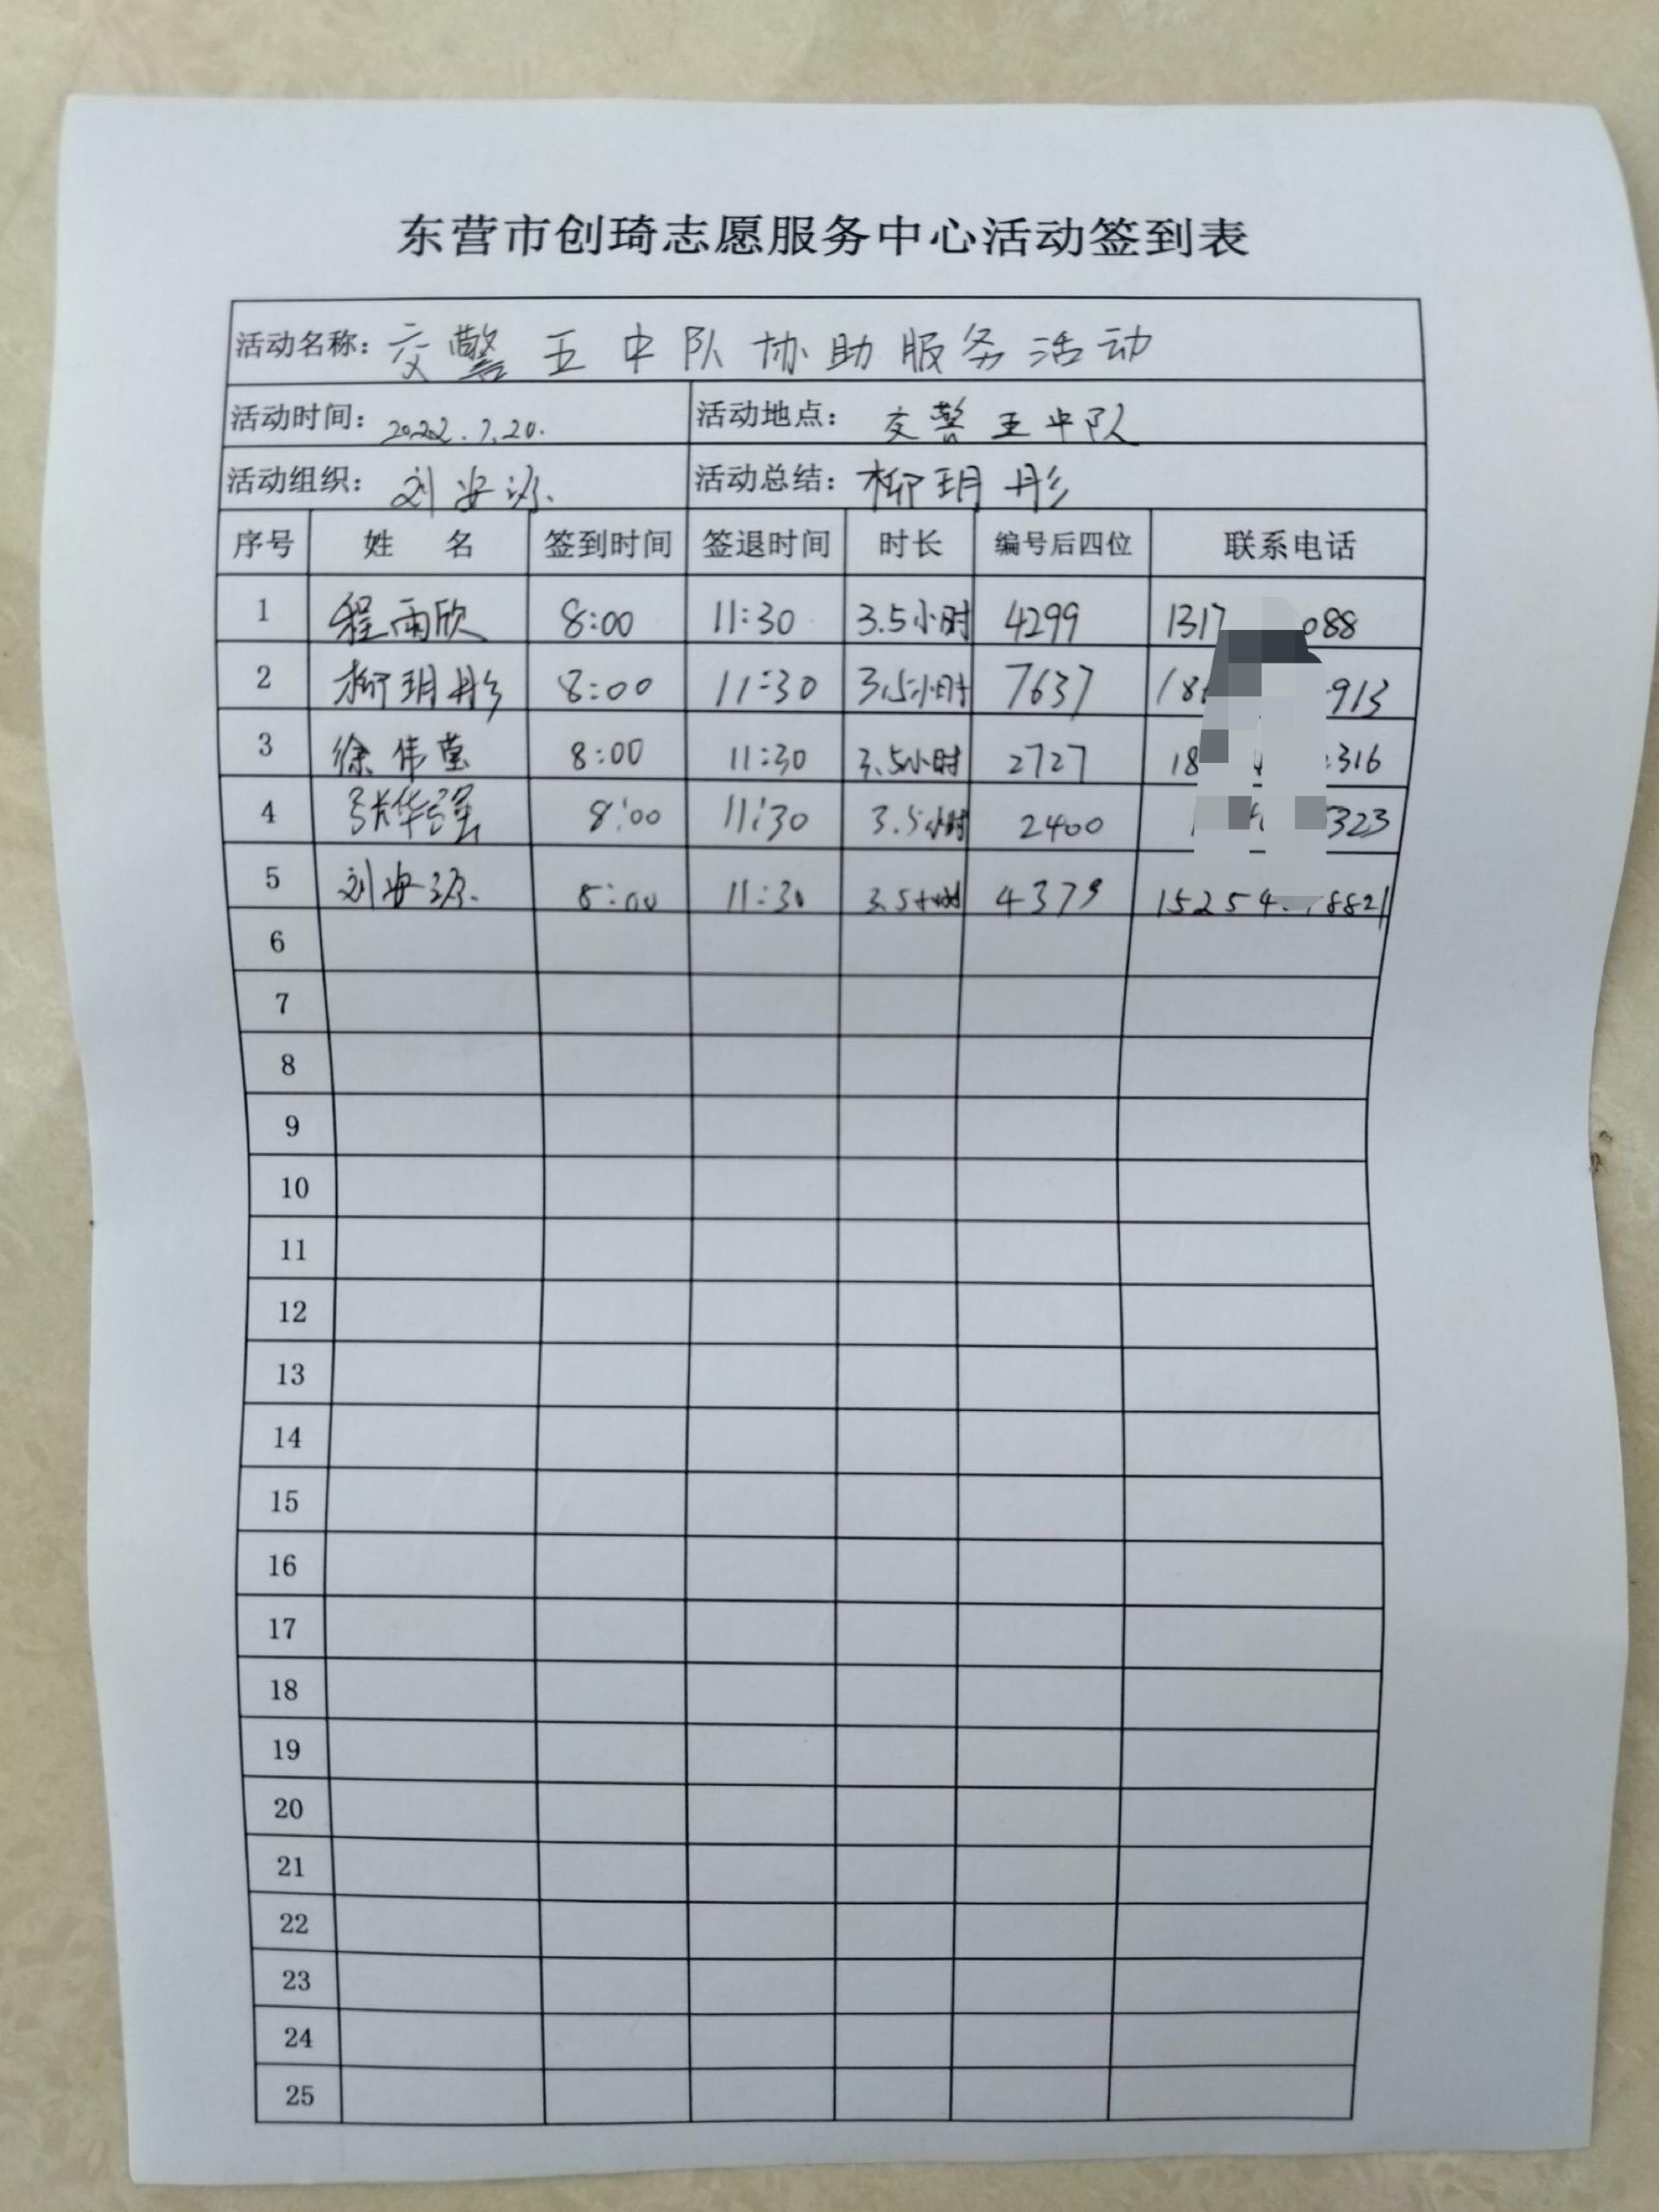 东营市创琦志愿服务中心活动签到表
活动名称：交警五中队协助服务活动
活动时间：2022.7.20. 活动地点：交警五中队
活动组织：刘安源 活动总结：柳玥彤
序号 姓 名 签到时间 签退时间 时长 编号后四位 联系电话
1 程雨欣 8:00 11:30 3.5小时 4299 1317 088
2 柳玥彤 8:00 11:30 3.5小时 7637 18 913
3 徐伟莹 8:00 11:30 3.5小时 2727 18 316
4 张华强 8:00 11:30 3.5小时 2400 1 323
5 刘安源 8:00 11:30 3.5小时 4379 15254 8821
6
7
8
9
10
11
12
13
14
15
16
17
18
19
20
21
22
23
24
25